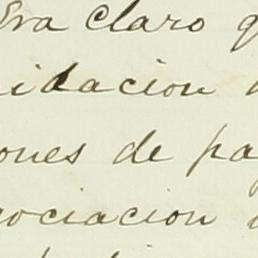 Era claro q
idacion
ones de pa
ociacion